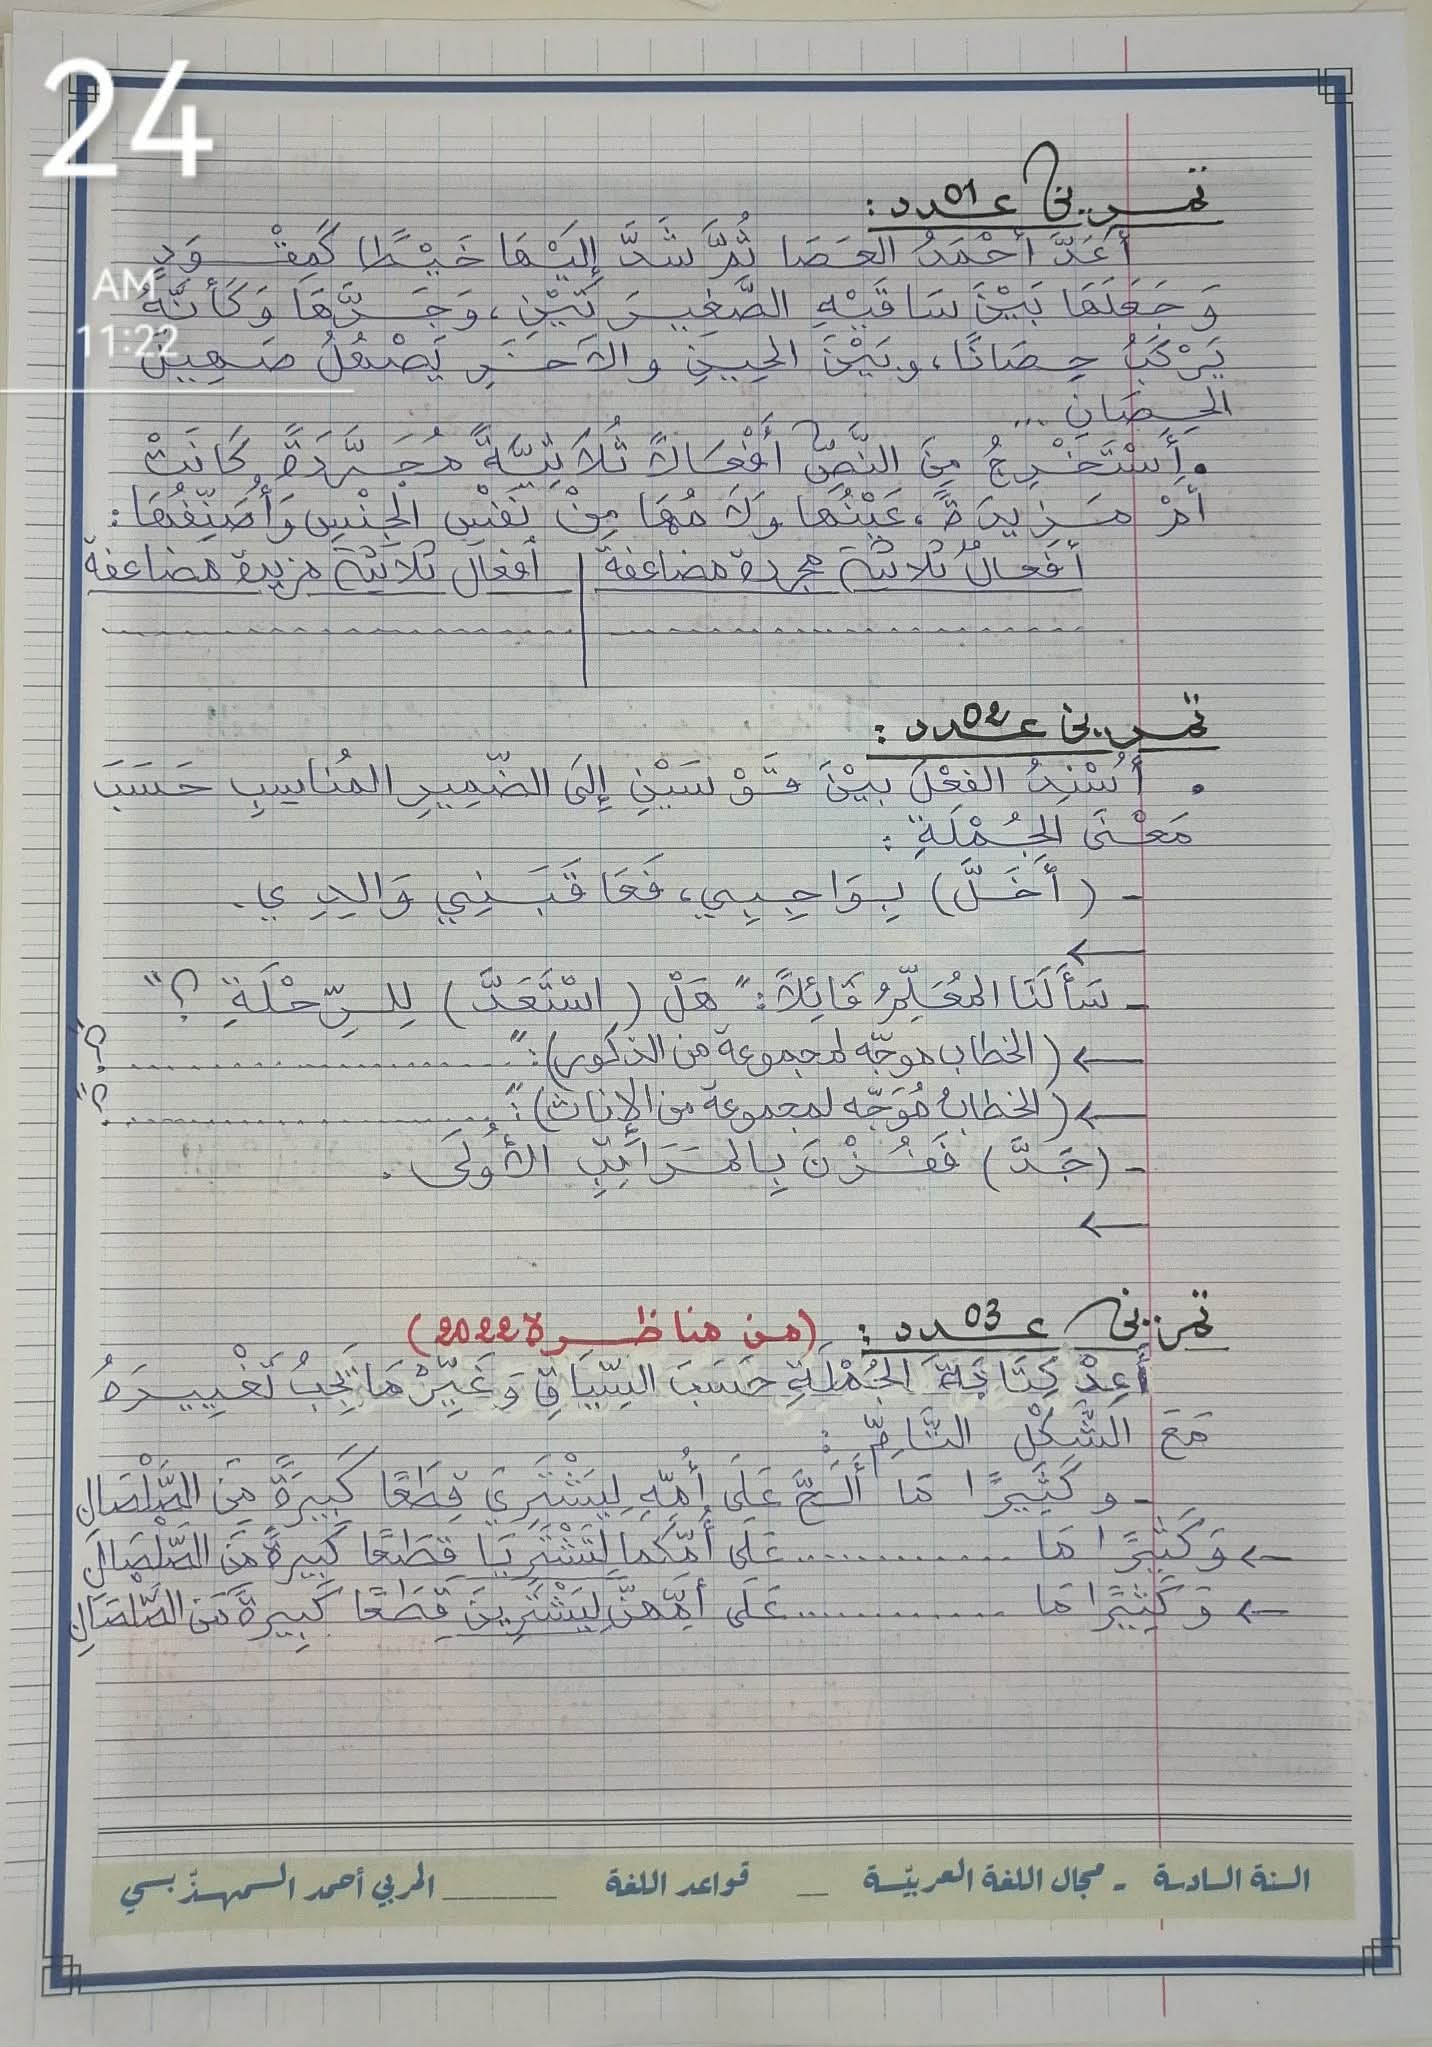 24
AM
11:22
تمرين عـ01ـدد:
أَعَدَّ أَحْمَدُ العَصَا ثُمَّ شَدَّ إِلَيْهَا خَيْطًا كَمِقْوَدٍ
وَجَعَلَهَا بَيْنَ سَاقَيْهِ الصَّغِيرَتَيْنِ، وَجَرَّهَا وَكَأَنَّهُ
يَرْكَبُ حِصَانًا، وبَيْنَ الحِينِ والآخَرِ يَصْهَلُ صَهِيلَ
الحِصَانِ ...
• أَسْتَخْرِجُ مِنَ النَّصِّ أَفْعَالاً ثُلاَثِيَّةً مُجَرَّدَةً كَانَتْ
أَمْ مَزِيدَةً، عَيْنُهَا وَلاَمُهَا مِنْ نَفْسِ الجِنْسِ وَأُصَنِّفُهَا:
أفعالٌ ثلاثيّة مجردة مضاعفة | أفعال ثلاثيّة مزيدة مضاعفة
تمرين عـ02ـدد:
• أُسْنِدُ الفِعْلَ بيْنَ قَوْسَيْنِ إِلَى الضَّمِيرِ المُنَاسِبِ حَسَبَ
مَعْنَى الجُمْلَةِ:
- (أَخَلَّ) بِوَاجِبِي، فَعَاقَبَنِي وَالِدِي.
←
- سَأَلَنَا المُعَلِّمُ قَائِلاً: "هَلْ (اسْتَعَدَّ) لِلرِّحْلَةِ ؟"
← (الخطاب موجّه لمجموعة من الذكور): ".................... ؟"
← (الخطابُ مُوَجّه لمجموعة من الإناث): ".................... ؟"
- (جَدَّ) فَفُزْنَ بِالمَرَاتِبِ الأُولَى.
←
تمرين عـ03ـدد: (من مناظرة 2022)
أَعِدْ كِتَابَةَ الجُمْلَةِ حَسَبَ السِّيَاقِ وَغَيِّرْ مَا يَجِبُ تَغْيِيرَهُ
مَعَ الشَّكْلِ التَّامِّ:
- وكَثِيرًا مَا أَلَحَّ عَلَى أُمِّهِ لِيَشْتَرِيَ قِطَعًا كَبِيرَةً مِنَ الصَّلْصَالِ
← وَكَثِيرًا مَا .............. عَلَى أُمِّكُمَا لِتَشْتَرِيَا قِطَعًا كَبِيرَةً مِنَ الصَّلْصَالِ
← وَكَثِيرًا مَا .............. عَلَى أُمِّهِنَّ لِيَشْتَرِينَ قِطَعًا كَبِيرَةً مِنَ الصَّلْصَالِ
السنة السادسة - مجال اللغة العربيّة _ قواعد اللغة ______ المربي أحمد السمهذّبسي